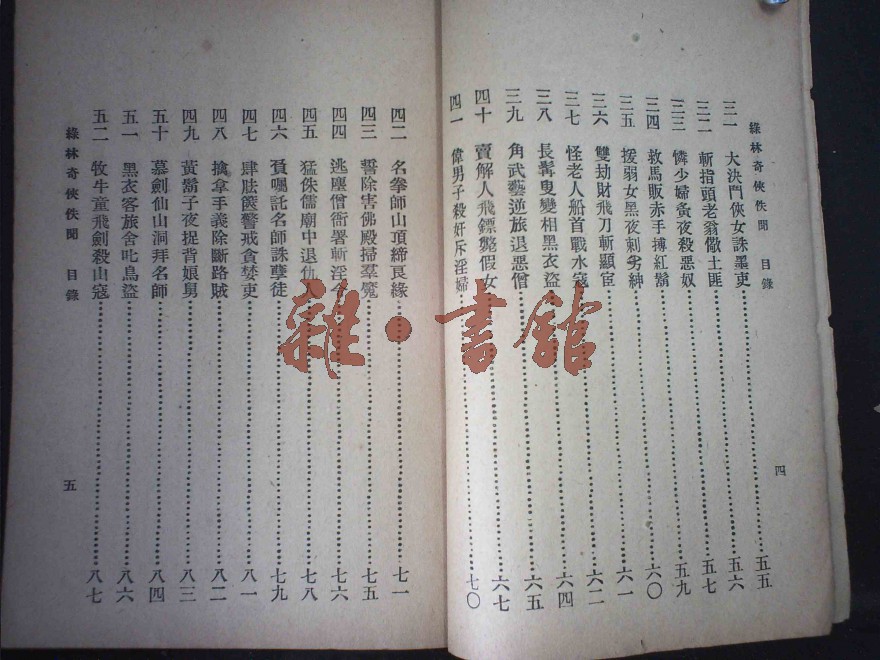 綠林奇俠佚聞　目錄
三一　大決鬥俠女誅墨吏……五五
三二　斬指頭老翁儆土匪……五六
三三　憐少婦夤夜殺惡奴……五七
三四　救馬販赤手搏紅鬍……五九
三五　援弱女黑夜刺劣紳……六〇
三六　雙劫財飛刀斬顯宦……六一
三七　怪老人船首戰水寇……六二
三八　長髯叟變相黑衣盜……六四
三九　角武藝逆旅退惡僧……六五
四十　賣解人飛鏢斃假女……六七
四一　偉男子殺奸斥淫婦……七〇
四
四二　名拳師山頂締良緣……七一
四三　誓除害佛殿掃羣魔……七五
四四　逃塵僧衙署斬淫令……七六
四五　猛侏儒廟中退仇人……七八
四六　負囑託名師誅孽徒……七九
四七　肆胠篋警戒貪婪吏……八一
四八　擒拿手義除斷路賊……八二
四九　黃鬍子夜捉背娘舅……八三
五十　慕劍仙山洞拜名師……八四
五一　黑衣客旅舍叱鳥盜……八六
五二　牧牛童飛劍殺山寇……八七
綠林奇俠佚聞　目錄
五
雜·書館